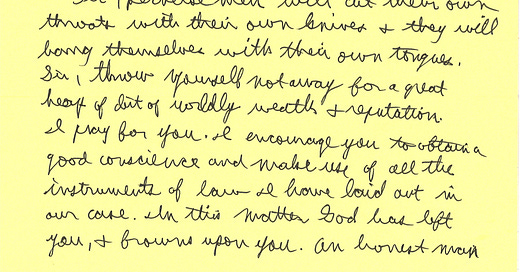 men will cut their own
throats with their own knives & they will
hang themselves with their own tongues.
Sir, throw yourself not away for a great
heap of dirt of worldly wealth & reputation.
I pray for you. I encourage you to obtain a
good conscience and make use of all the
instruments of law I have laid out in
our case. In this matter God has left
you, & frowns upon you. An honest man